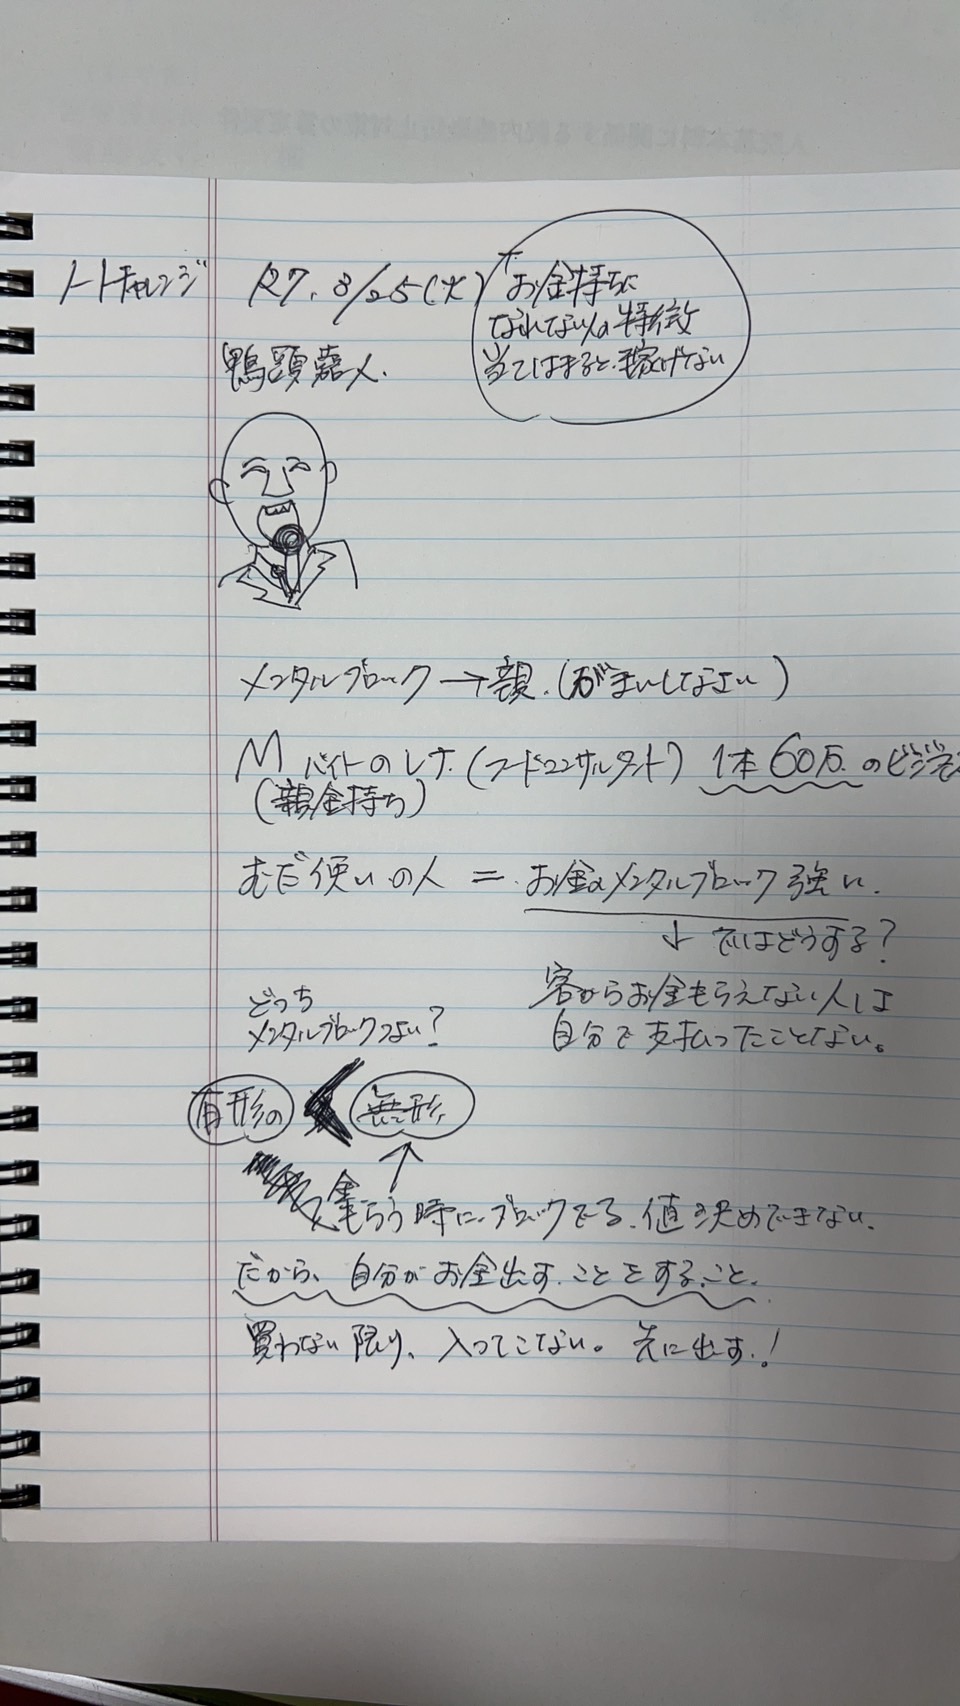 ノートチャレンジ R7. 3/25(火)
お金持ちに
なれない人の特徴
当てはまると、稼げない
鴨頭嘉人.
メンタルブロック→親.(がまんしなさい)
M バイトのレナ.(フードコンサルタント) 1本60万.のビジネス
(親金持ち)
むだ使いの人 = お金のメンタルブロック強い.
↓ ではどうする?
客からお金もらえない人は
自分で支払ったことない。
どっち
メンタルブロックつよい?
有形の < 無形
↑
金もらう時に、ブロックでる.値を決めできない.
だから、自分がお金出す.ことをすること.
買わない限り、入ってこない。先に出す.!